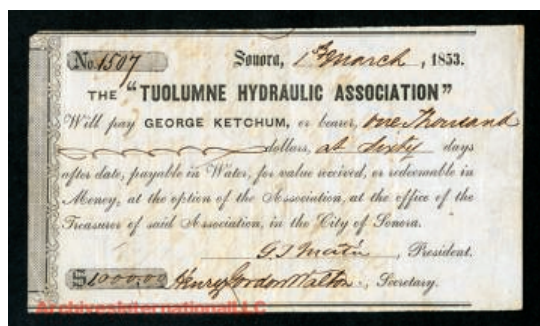 No. 1507 Sonora, 1st March, 1853.
THE "TUOLUMNE HYDRAULIC ASSOCIATION"
Will pay GEORGE KETCHUM, or bearer, One Thousand
dollars, at sixty days
after date, payable in Water, for value received, or redeemable in
Money, at the option of the Association, at the office of the
Treasurer of said Association, in the City of Sonora.
G S Martin, President.
$1000.00 Henry Gordon Walton, Secretary.
ArchivesInternationalLLC